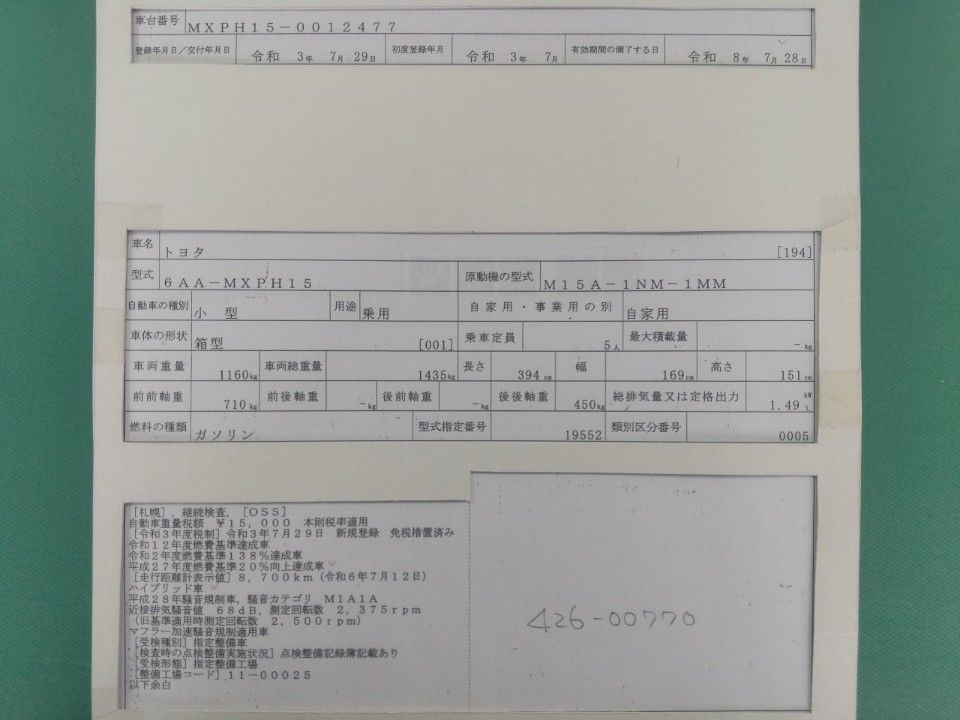 車台番号 MXPH15-0012477
登録年月日/交付年月日 令和 3年 7月 29日 初度登録年月 令和 3年 7月 有効期間の満了する日 令和 8年 7月 28日
車名 トヨタ [194]
型式 6AA-MXPH15 原動機の型式 M15A-1NM-1MM
自動車の種別 小型 用途 乗用 自家用・事業用の別 自家用
車体の形状 箱型 [001] 乗車定員 5人 最大積載量 -kg
車両重量 1160kg 車両総重量 1435kg 長さ 394cm 幅 169cm 高さ 151cm
前前軸重 710kg 前後軸重 -kg 後前軸重 -kg 後後軸重 450kg 総排気量又は定格出力 1.49 kW L
燃料の種類 ガソリン 型式指定番号 19552 類別区分番号 0005
[札幌],継続検査,[OSS]
自動車重量税額 ¥15,000 本則税率適用
[令和3年度税制]令和3年7月29日 新規登録 免税措置済み
令和12年度燃費基準達成車
令和2年度燃費基準138%達成車
平成27年度燃費基準20%向上達成車
[走行距離計表示値]8,700km(令和6年7月12日)
ハイブリッド車
平成28年騒音規制車,騒音カテゴリ M1A1A
近接排気騒音値 68dB,測定回転数 2,375rpm
(旧基準適用時測定回転数 2,500rpm)
マフラー加速騒音規制適用車
[受検種別]指定整備車
[検査時の点検整備実施状況]点検整備記録簿記載あり
[受検形態]指定整備工場
[整備工場コード]11-00025
以下余白
426-00770